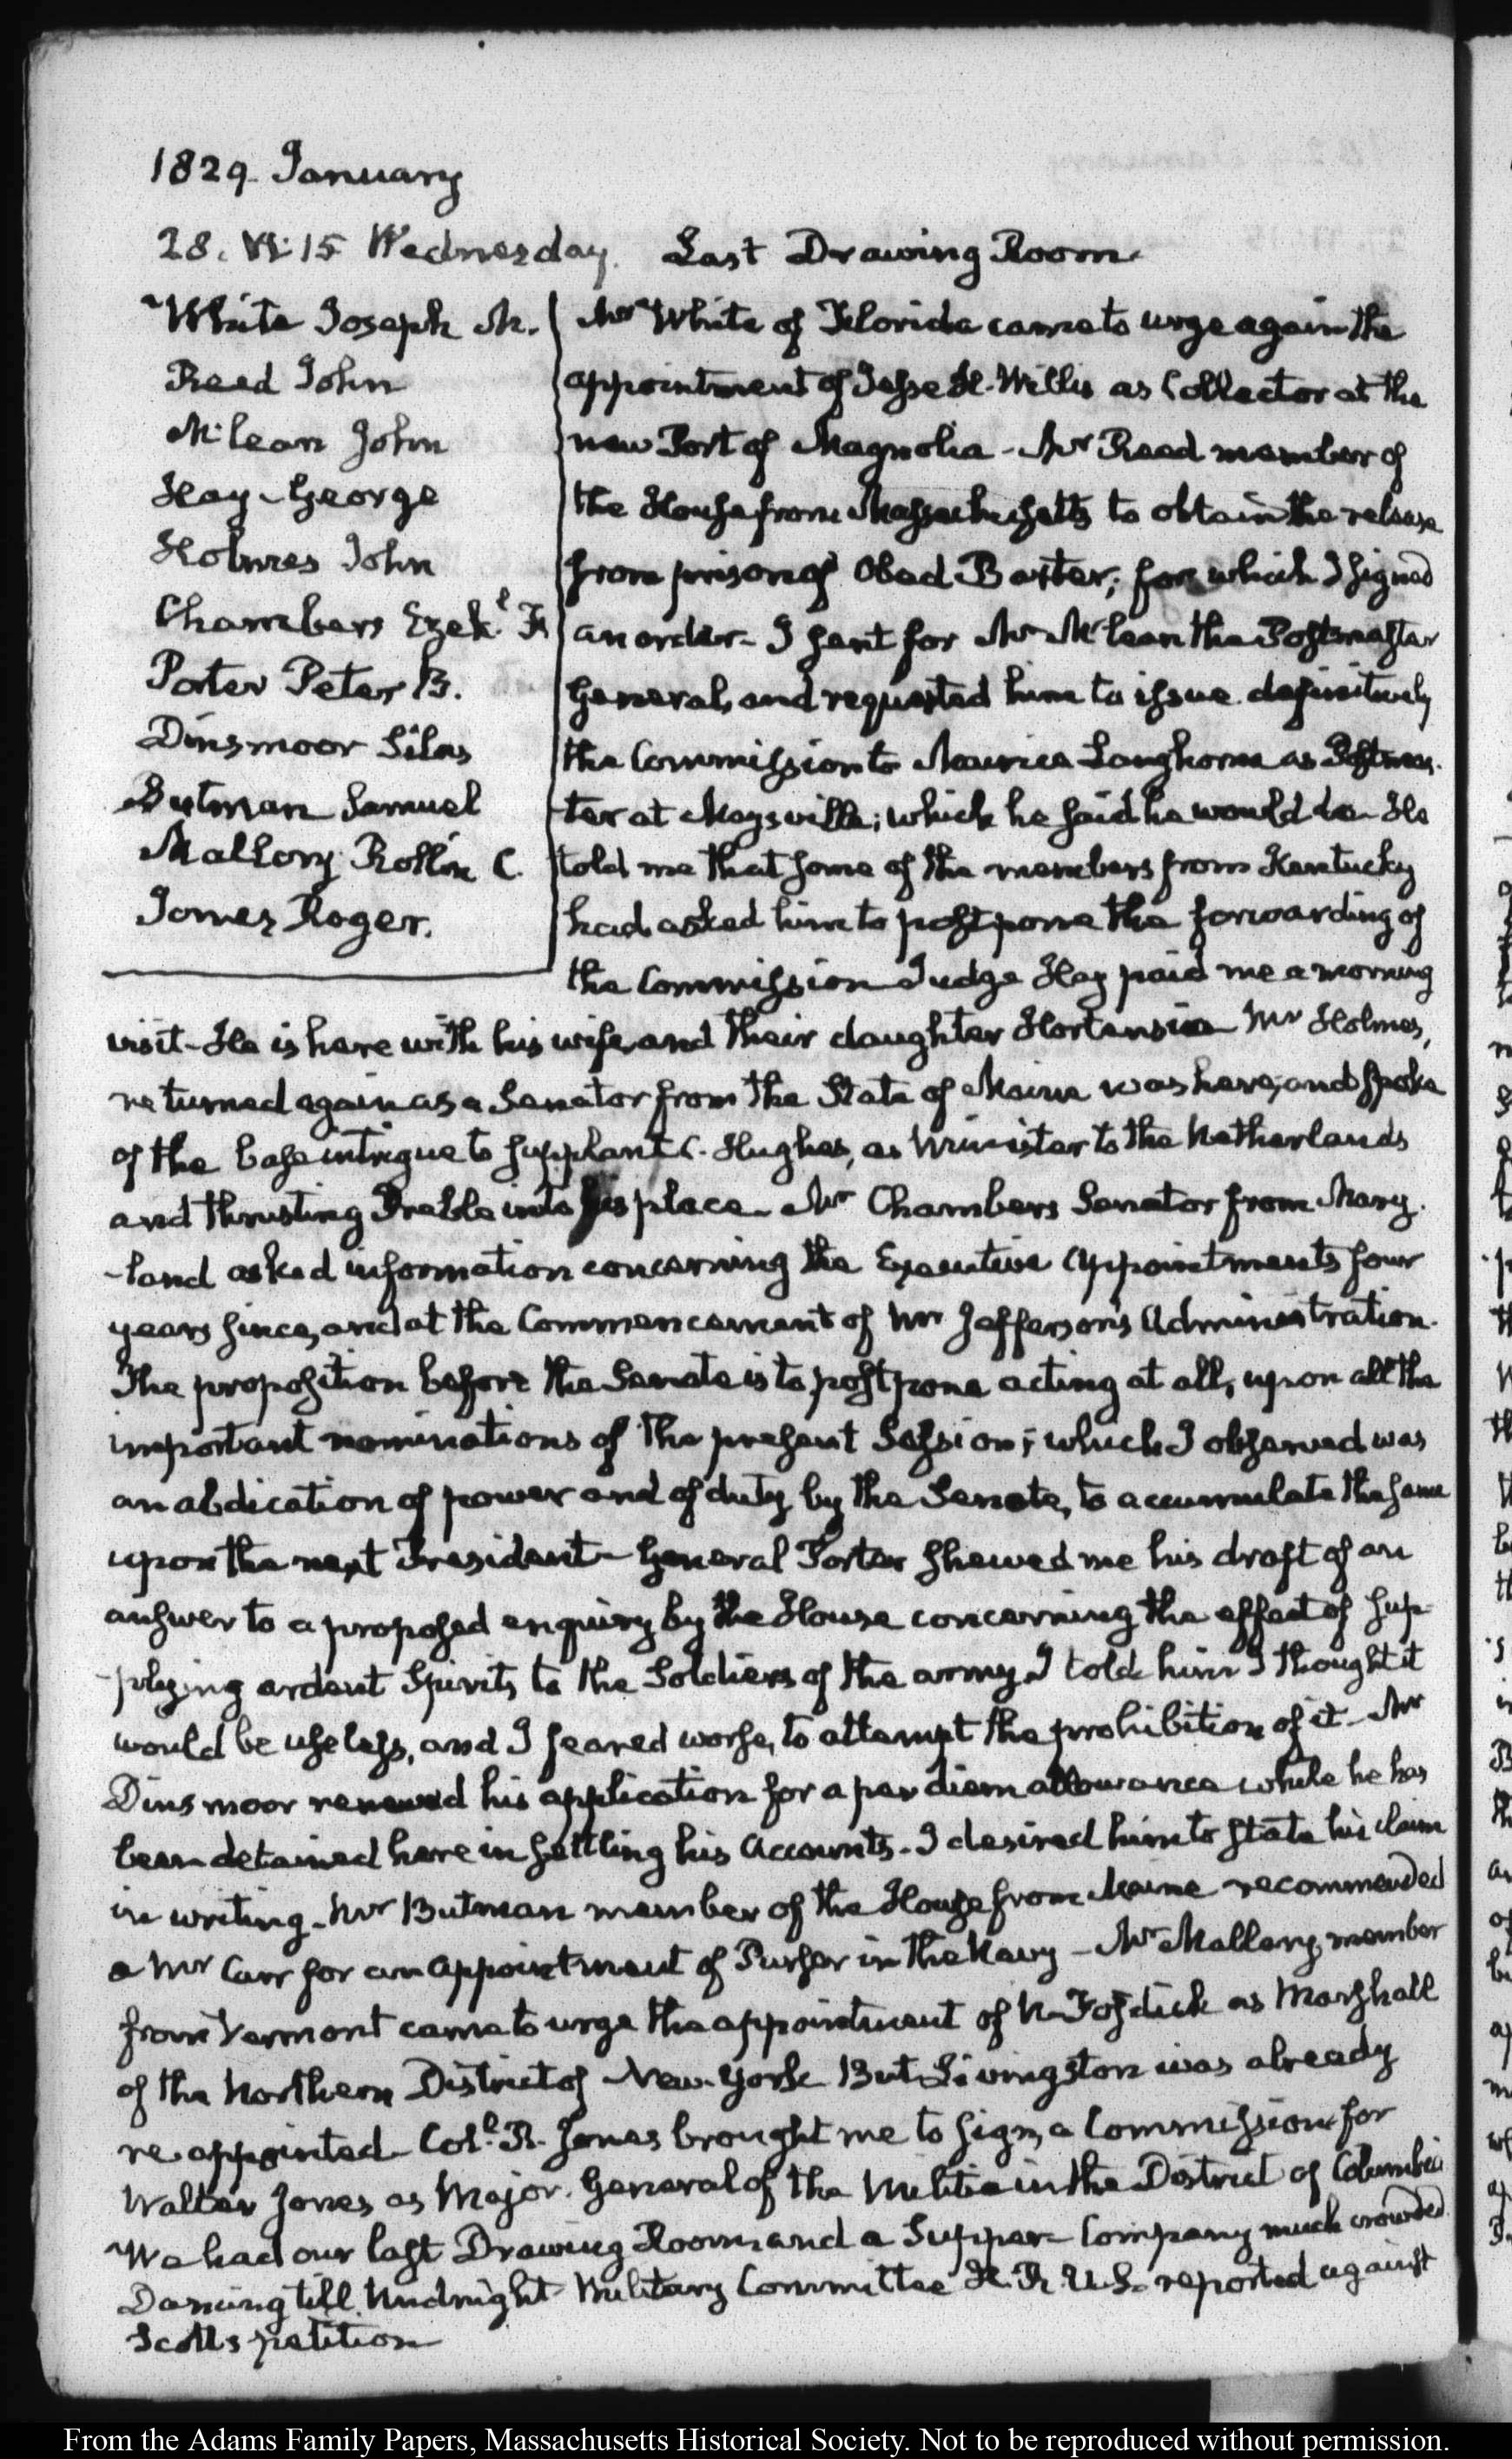 1829. January
28. VI:15 Wednesday. Last Drawing Room.
White Joseph M.
Reed John
McLean John
Hay George
Holmes John
Chambers Ezek.l F.
Porter Peter B.
Dinsmoor Silas
Butman Samuel
Mallory Rollin C.
Jones Roger.
Mr White of Florida came to urge again the
appointment of Jesse H. Willis as Collector at the
new Port of Magnolia - Mr Reed member of
the House from Massachusetts to obtain the release
from prison of Obed Baxter; for which I signed
an order - I sent for Mr McLean the Postmaster
General, and requested him to issue definitively
the Commission to Maurice Langhorne as Postmas-
ter at Maysville; which he said he would do - He
told me that some of the members from Kentucky
had asked him to postpone the forwarding of
the Commission Judge Hay paid me a morning
visit - He is here with his wife, and their daughter Hortensia Mr Holmes,
returned again as a Senator from the State of Maine was here, and spoke
of the base intrigue to supplant C. Hughes, as Minister to the Netherlands
and thrusting Preble into his place - Mr Chambers Senator from Mary-
-land asked information concerning the Executive Appointments four
years since, and at the Commencement of Mr Jefferson's Administration.
The proposition before the Senate is to postpone acting at all, upon all the
important nominations of the present Session; which I observed was
an abdication of power and of duty by the Senate, to accumulate the same
upon the next President - General Porter shewed me his draft of an
answer to a proposed enquiry by the House concerning the effect of sup-
-plying ardent Spirits to the Soldiers of the army. I told him I thought it
would be useless, and I feared worse, to attempt the prohibition of it - Mr
Dinsmoor renewed his application for a per diem allowance while he has
been detained here in settling his Accounts. I desired him to state his claim
in writing - Mr Butman member of the House from Maine recommended
a Mr Carr for an appointment of Purser in the Navy - Mr Mallary, member
from Vermont came to urge the appointment of N. Fosdick as Marshall
of the Northern District of New-York But Livingston was already
re-appointed - Col.l R. Jones brought me to sign, a Commission for
Walter Jones as Major-General of the Militia in the District of Columbia
We had our last Drawing Room and a Supper - Company much crowded
Dancing till Midnight - Military Committee H. R. U.S. reported against
Scott's petition
From the Adams Family Papers, Massachusetts Historical Society. Not to be reproduced without permission.